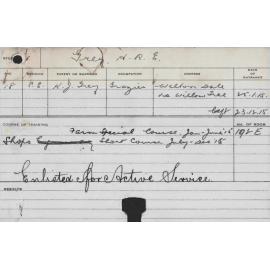 Grey, H. R. E.
AGE RELIGION PARENT OR GUARDIAN OCCUPATION ADDRESS DATE OF ENTRANCE
18 C.E. H. J. Grey Grazier Willow Dale
Willow Tree 25.1.15
Left 23.12.15
COURSE OF TRAINING NO. OF ROOM
Farm Special Course, Jan-June 15 19 & E
Shops Short Course July-Dec 15
Enlisted for Active Service.
RESULTS